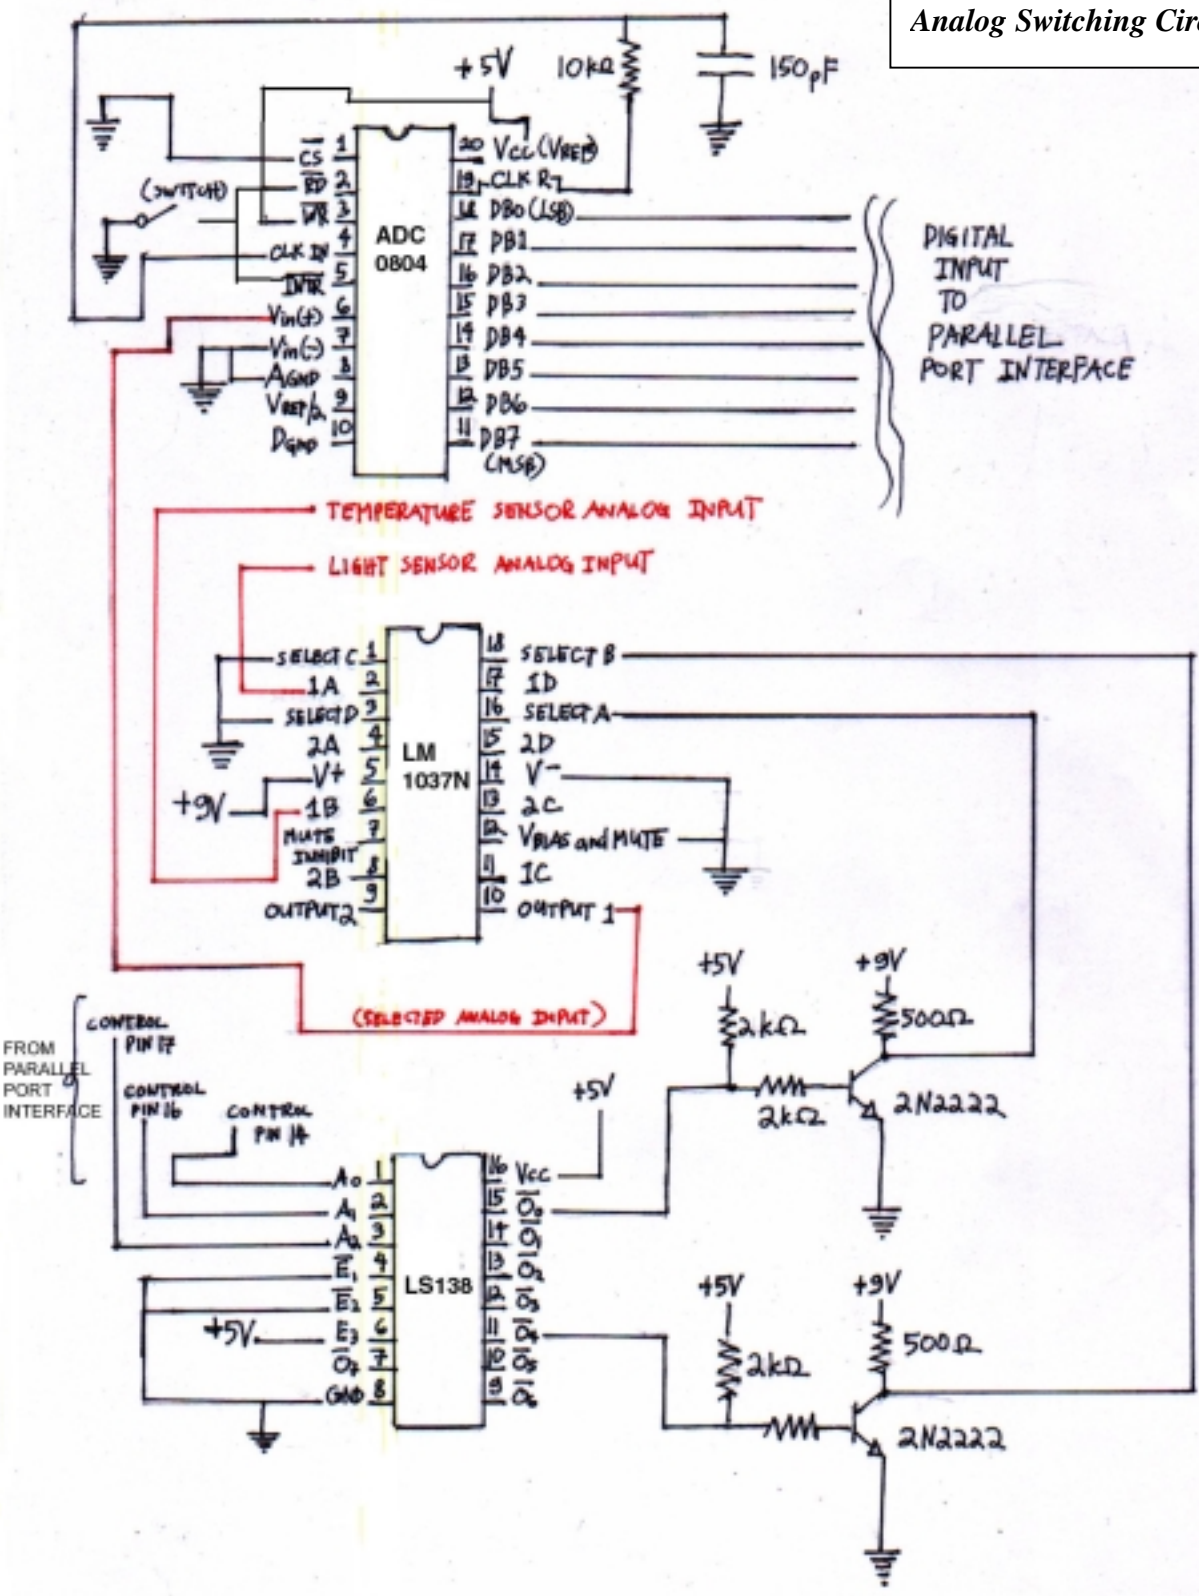 Analog Switching Cir
+5V
10kΩ
150pF
C̅S̅ 1
R̅D̅ 2
W̅R̅ 3
CLK IN 4
I̅N̅T̅R̅ 5
Vin(+) 6
Vin(-) 7
AGND 8
VREF/2 9
DGND 10
(SWITCH)
ADC
0804
20 VCC (VREF)
19 CLK R
18 DB0 (LSB)
17 DB1
16 DB2
15 DB3
14 DB4
13 DB5
12 DB6
11 DB7
(MSB)
DIGITAL
INPUT
TO
PARALLEL
PORT INTERFACE
TEMPERATURE SENSOR ANALOG INPUT
LIGHT SENSOR ANALOG INPUT
SELECT C 1
1A 2
SELECT D 3
2A 4
V+ 5
+9V
1B 6
MUTE 7
INHIBIT
2B 8
OUTPUT 2 9
LM
1037N
18 SELECT B
17 1D
16 SELECT A
15 2D
14 V-
13 2C
12 VBIAS and MUTE
11 1C
10 OUTPUT 1
(SELECTED ANALOG INPUT)
FROM
PARALLEL
PORT
INTERFACE
CONTROL
PIN 17
CONTROL
PIN 16
CONTROL
PIN 14
+5V
+5V
+9V
2kΩ
500Ω
2kΩ
2N2222
A0 1
A1 2
A2 3
E̅1 4
E̅2 5
+5V
E3 6
O̅7 7
GND 8
LS138
16 VCC
15 O̅0
14 O̅1
13 O̅2
12 O̅3
11 O̅4
10 O̅5
9 O̅6
+5V
+9V
2kΩ
500Ω
2N2222